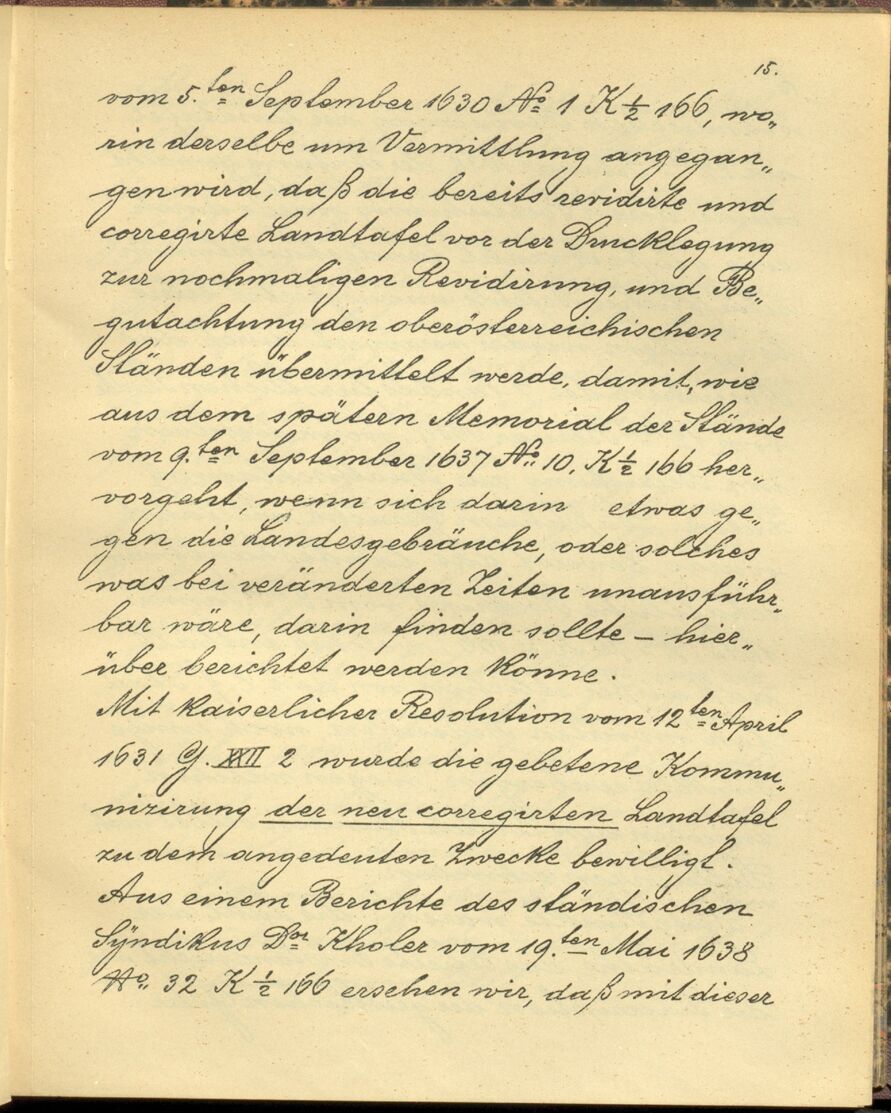 15.
vom 5.ten September 1630 No 1 K 1/2 166, wo„
rin derselbe um Vermittlung angegan„
gen wird, daß die bereits revidirte und
corregirte Landtafel vor der Drucklegung
zur nochmaligen Revidirung, und Be„
gutachtung den oberösterreichischen
Ständen übermittelt werde, damit, wie
aus dem spätern Memorial der Stände
vom 9.ten September 1637 No. 10. K 1/2 166 her„
vorgeht, wenn sich darin etwas ge„
gen die Landesgebräuche, oder solches
was bei veränderten Zeiten unausführ„
bar wäre, darin finden sollte – hier„
über berichtet werden könne.
Mit kaiserlicher Resolution vom 12ten April
1631 G. XXII 2 wurde die gebetene Kommu„
nizirung der neu corregirten Landtafel
zu dem angedeuten Zwecke bewilligt.
Aus einem Berichte des ständischen
Syndikus Dor Kholer vom 19.ten Mai 1638
No. 32 K 1/2 166 ersehen wir, daß mit dieser